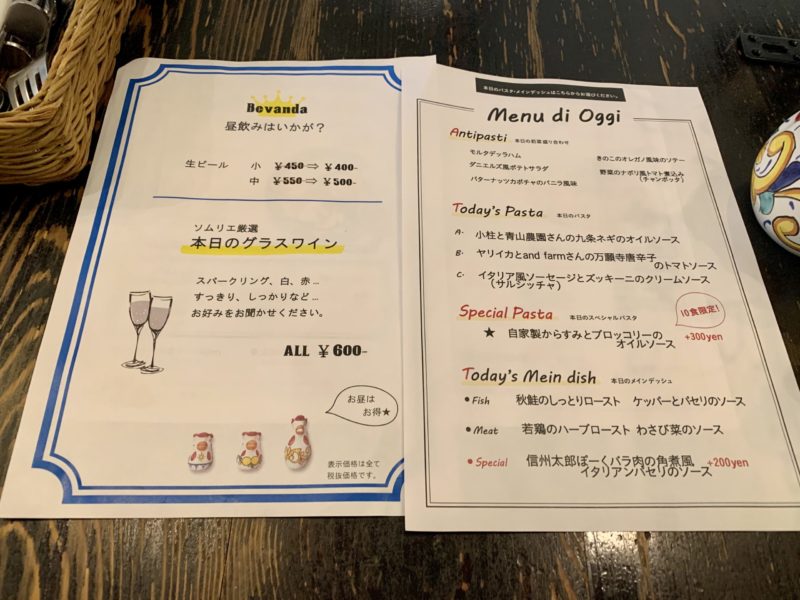 Bevanda
昼飲みはいかが？
生ビール 小 ￥450⇒￥400-
中 ￥550⇒￥500-
ソムリエ厳選
本日のグラスワイン
スパークリング、白、赤…
すっきり、しっかりなど…
お好みをお聞かせください。
ALL ￥600-
お昼は
お得★
表示価格は全て
税抜価格です。
本日のパスタ・メインディッシュはこちらからお選びください。
Menu di Oggi
Antipasti 本日の前菜盛り合わせ
モルタデッラハム
ダニエルズ風ポテトサラダ
バターナッツカボチャのバニラ風味
きのこのオレガノ風味のソテー
野菜のナポリ風トマト煮込み
（チャンボッタ）
Today's Pasta 本日のパスタ
A. 小柱と青山農園さんの九条ネギのオイルソース
B. ヤリイカとand farmさんの万願寺唐辛子
のトマトソース
C. イタリア風ソーセージとズッキーニのクリームソース
（サルシッチャ）
Special Pasta 本日のスペシャルパスタ
10食限定！
★ 自家製からすみとブロッコリーの
オイルソース +300yen
Today's Mein dish 本日のメインデッシュ
• Fish 秋鮭のしっとりロースト ケッパーとパセリのソース
• Meat 若鶏のハーブロースト わさび菜のソース
• Special 信州太郎ぽーくバラ肉の角煮風 +200yen
イタリアンパセリのソース